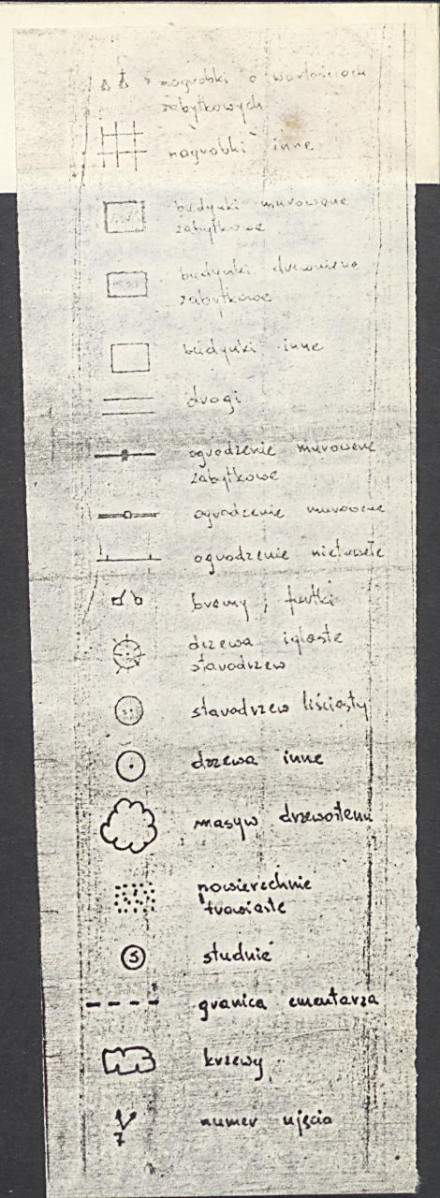 nagrobki o wartościach
zabytkowych
nagrobki inne
budynki murowane
zabytkowe
budynki drewniane
zabytkowe
budynki inne
drogi
ogrodzenie murowane
zabytkowe
ogrodzenie murowane
ogrodzenie nietrwałe
bramy i furtki
drzewa iglaste
starodrzew
starodrzew liściasty
drzewa inne
masyw drzewostanu
powierzchnie
trawiaste
S studnie
granica cmentarza
krzewy
7 numer ujęcia